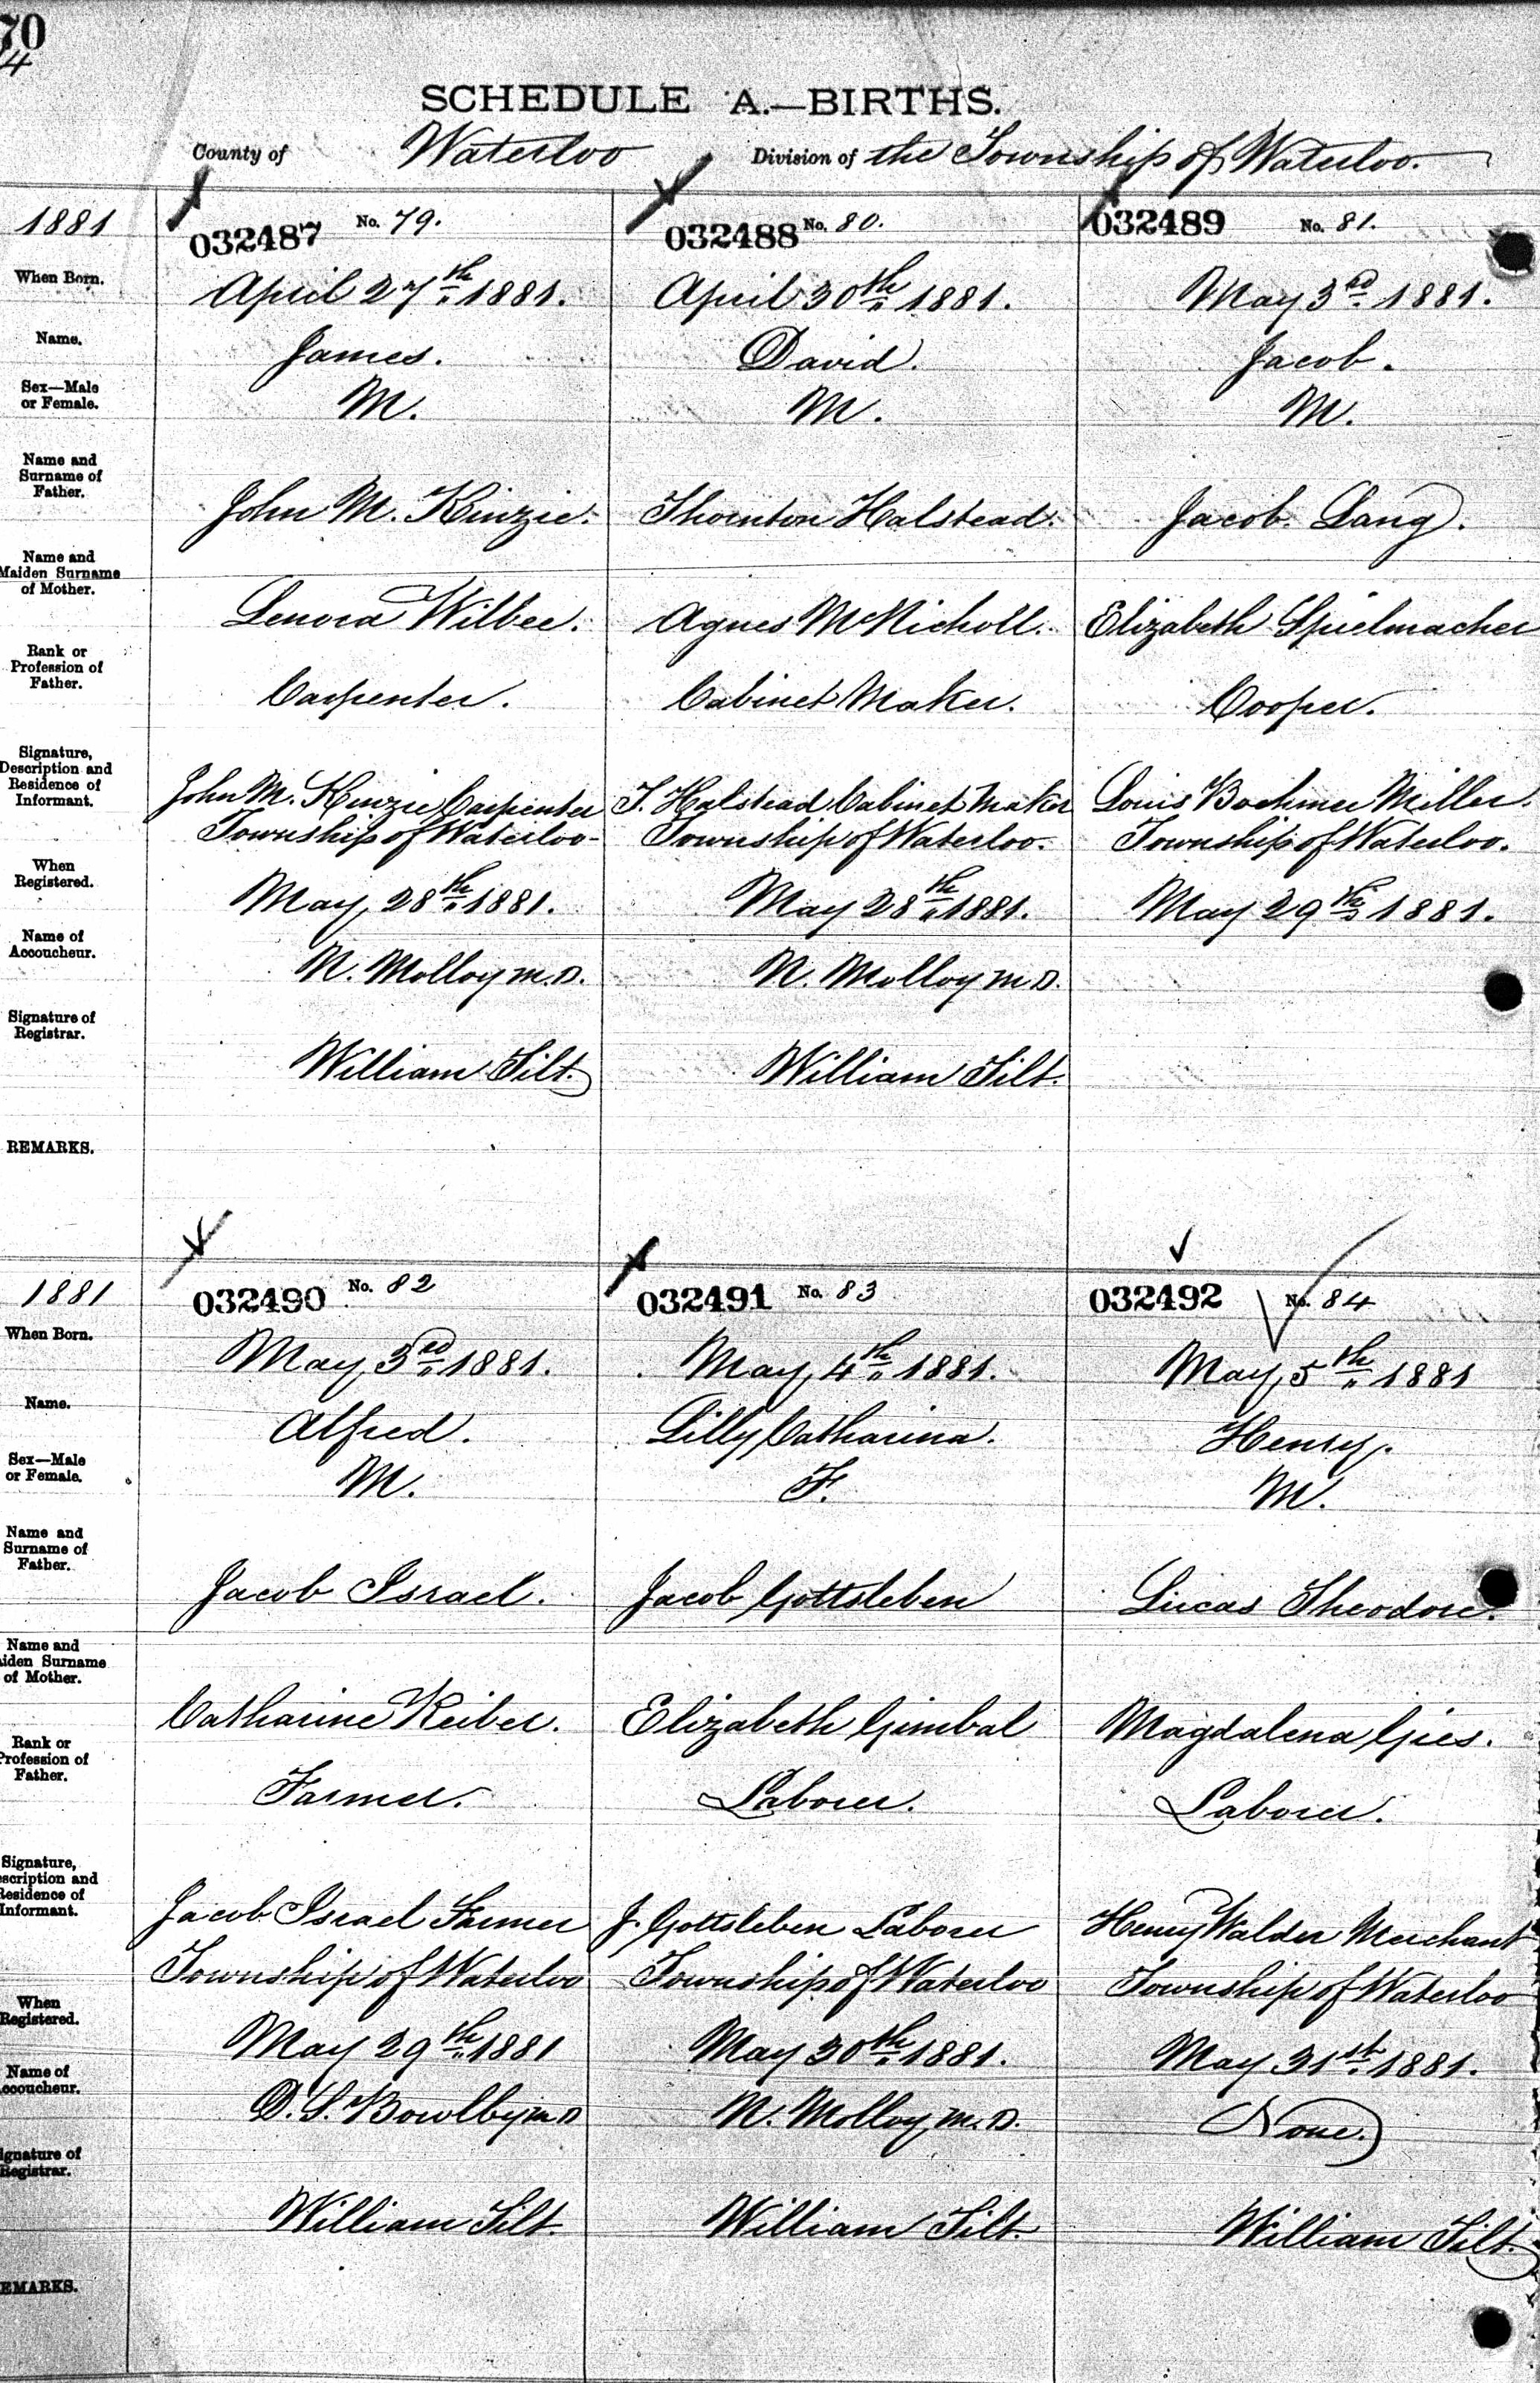 70
4
SCHEDULE A.—BIRTHS.
County of Waterloo Division of the Township of Waterloo.
1881 032487 No. 79. 032488 No. 80. 032489 No. 81.
When Born. April 27th 1881. April 30th 1881. May 3rd 1881.
Name. James. David. Jacob.
Sex—Male or Female. M. M. M.
Name and Surname of Father. John M. Kinzie. Thornton Halstead. Jacob Lang.
Name and Maiden Surname of Mother. Lenora Wilbee. Agnes McNicholl. Elizabeth Spielmacher
Rank or Profession of Father. Carpenter. Cabinet Maker. Cooper.
Signature, Description and Residence of Informant. John M. Kinzie Carpenter T. Halstead Cabinet Maker Louis Boehmer Miller.
Township of Waterloo- Township of Waterloo. Township of Waterloo.
When Registered. May 28th 1881. May 28th 1881. May 29th 1881.
Name of Accoucheur. N. Molloy M.D. N. Molloy M.D.
Signature of Registrar. William Tilt. William Tilt.
REMARKS.
1881 032490 No. 82 032491 No. 83 032492 No. 84
When Born. May 3rd 1881. May 4th 1881. May 5th 1881
Name. Alfred. Lilly Catharina. Henry.
Sex—Male or Female. M. F. M.
Name and Surname of Father. Jacob Israel. Jacob Gottsleben Lucas Theodore.
Name and aiden Surname of Mother. Catharine Reiber. Elizabeth Gimbal Magdalena Gies.
Rank or Profession of Father. Farmer. Laborer. Laborer.
Signature, escription and Residence of Informant. Jacob Israel Farmer J. Gottsleben Laborer Henry Walder Merchant
Township of Waterloo Township of Waterloo Township of Waterloo
When Registered. May 29th 1881 May 30th 1881. May 31st 1881.
Name of Accoucheur. D. S. Bowlby M.D N. Molloy M.D. None.
ignature of Registrar. William Tilt. William Tilt. William Tilt.
EMARKS.